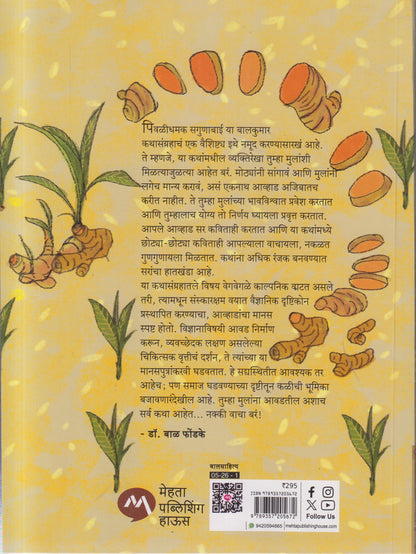 पिवळीधमक सगुणाबाई या बालकुमार
कथासंग्रहाचं एक वैशिष्ट्य इथे नमूद करण्यासारखं आहे.
ते म्हणजे, या कथांमधील व्यक्तिरेखा तुम्हा मुलांशी
मिळत्याजुळत्या आहेत बरं. मोठ्यांनी सांगावं आणि मुलांनी
लगेच मान्य करावं, असं एकनाथ आव्हाड अजिबातच
करीत नाहीत. ते तुम्हा मुलांच्या भावविश्वात प्रवेश करतात
आणि तुम्हालाच योग्य तो निर्णय घ्यायला प्रवृत्त करतात.
आपले आव्हाड सर कविताही करतात आणि या कथांमध्ये
छोट्या-छोट्या कविताही आपल्याला वाचायला, नकळत
गुणगुणायला मिळतात. कथांना अधिक रंजक बनवण्यात
सरांचा हातखंडा आहे.
या कथासंग्रहातले विषय वेगवेगळे काल्पनिक वाटत असले
तरी, त्यामधून संस्कारक्षम वयात वैज्ञानिक दृष्टिकोन
प्रस्थापित करण्याचा, आव्हाडांचा मानस
स्पष्ट होतो. विज्ञानाविषयी आवड निर्माण
करून, व्यवच्छेदक लक्षण असलेल्या
चिकित्सक वृत्तीचं दर्शन, ते त्यांच्या या
मानसपुत्रांकरवी घडवतात. हे सद्यस्थितीत आवश्यक तर
आहेच; पण समाज घडवण्याच्या दृष्टीतून कळीची भूमिका
बजावणारंदेखील आहे. तुम्हा मुलांना आवडतील अशाच
सर्व कथा आहेत... नक्की वाचा बरं!
- डॉ. बाळ फोंडके
मेहता
पब्लिशिंग
हाऊस
बालसाहित्य
05-26 - 1
₹295
ISBN 9789357205672
9 789357 205672
Follow Us
9420594665
mehtapublishinghouse.com